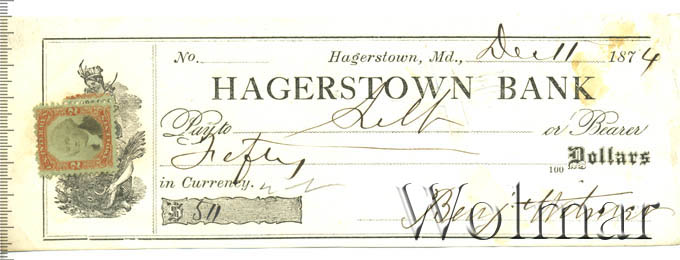 No. Hagerstown, Md., Dec 11 1874
HAGERSTOWN BANK
Pay to Self or Bearer
Fifty 100 Dollars
in Currency.
$ 50
Benj
Wolmar